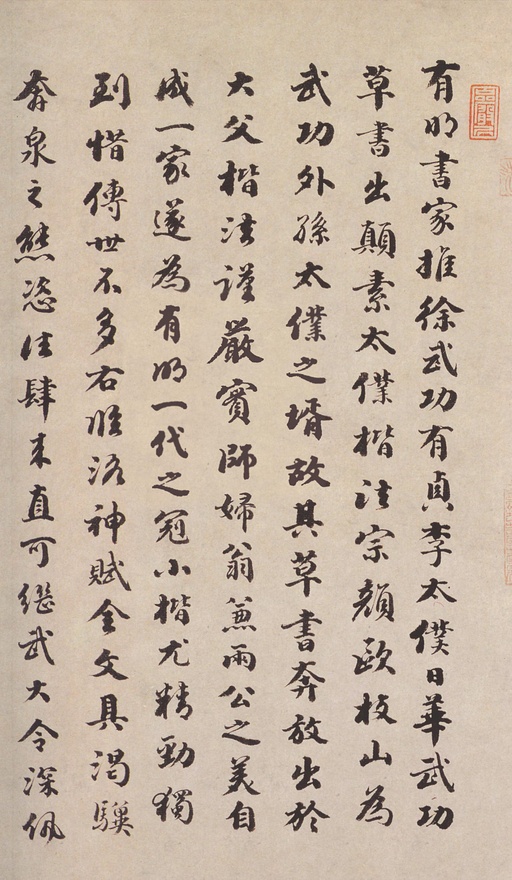 有明書家推徐武功有貞李太僕日華武功
草書出顛素太僕楷法宗顏歐枝山為
武功外孫太僕之壻故其草書奔放出於
大父楷法謹嚴實師婦翁兼兩公之美自
成一家遂為有明一代之冠小楷尤精勁獨
到惜傳世不多右臨洛神賦全文具渴驥
奔泉之態恣往肆来直可繼武大令深佩